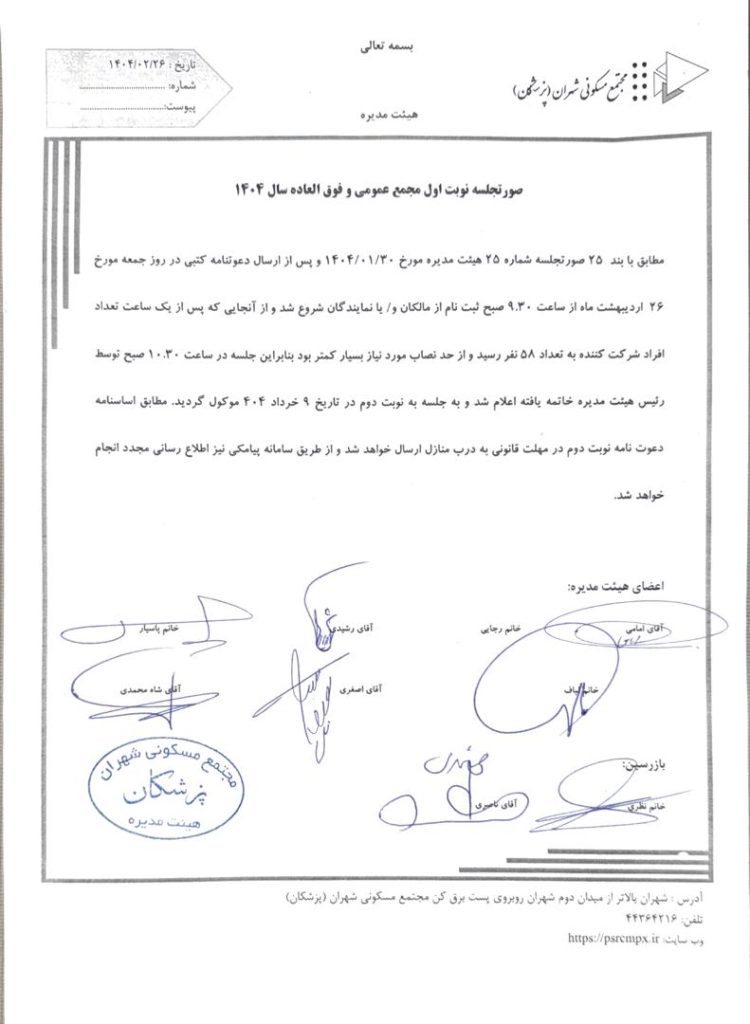 بسمه تعالی
مجتمع مسکونی شهران (پزشکان)
هیئت مدیره
تاریخ : ۱۴۰۴/۰۲/۲۶
شماره: ................................
پیوست:................................
صورتجلسه نوبت اول مجمع عمومی و فوق العاده سال ۱۴۰۴
مطابق با بند ۲۵ صورتجلسه شماره ۲۵ هیئت مدیره مورخ ۱۴۰۴/۰۱/۳۰ و پس از ارسال دعوتنامه کتبی در روز جمعه مورخ
۲۶ اردیبهشت ماه از ساعت ۹.۳۰ صبح ثبت نام از مالکان و/ یا نمایندگان شروع شد و از آنجایی که پس از یک ساعت تعداد
افراد شرکت کننده به تعداد ۵۸ نفر رسید و از حد نصاب مورد نیاز بسیار کمتر بود بنابراین جلسه در ساعت ۱۰.۳۰ صبح توسط
رئیس هیئت مدیره خاتمه یافته اعلام شد و به جلسه به نوبت دوم در تاریخ ۹ خرداد ۴۰۴ موکول گردید. مطابق اساسنامه
دعوت نامه نوبت دوم در مهلت قانونی به درب منازل ارسال خواهد شد و از طریق سامانه پیامکی نیز اطلاع رسانی مجدد انجام
خواهد شد.
اعضای هیئت مدیره:
آقای امامی خانم رجایی آقای رشیدی خانم پاسیار
خانم لباف آقای اصغری آقای شاه محمدی
بازرسین:
خانم نظری آقای ناصری
مجتمع مسکونی شهران
پزشکان
هیئت مدیره
آدرس : شهران بالاتر از میدان دوم شهران روبروی پست برق کن مجتمع مسکونی شهران (پزشکان)
تلفن: ۴۴۳۶۴۲۱۶
وب سایت: https://psrcmpx.ir